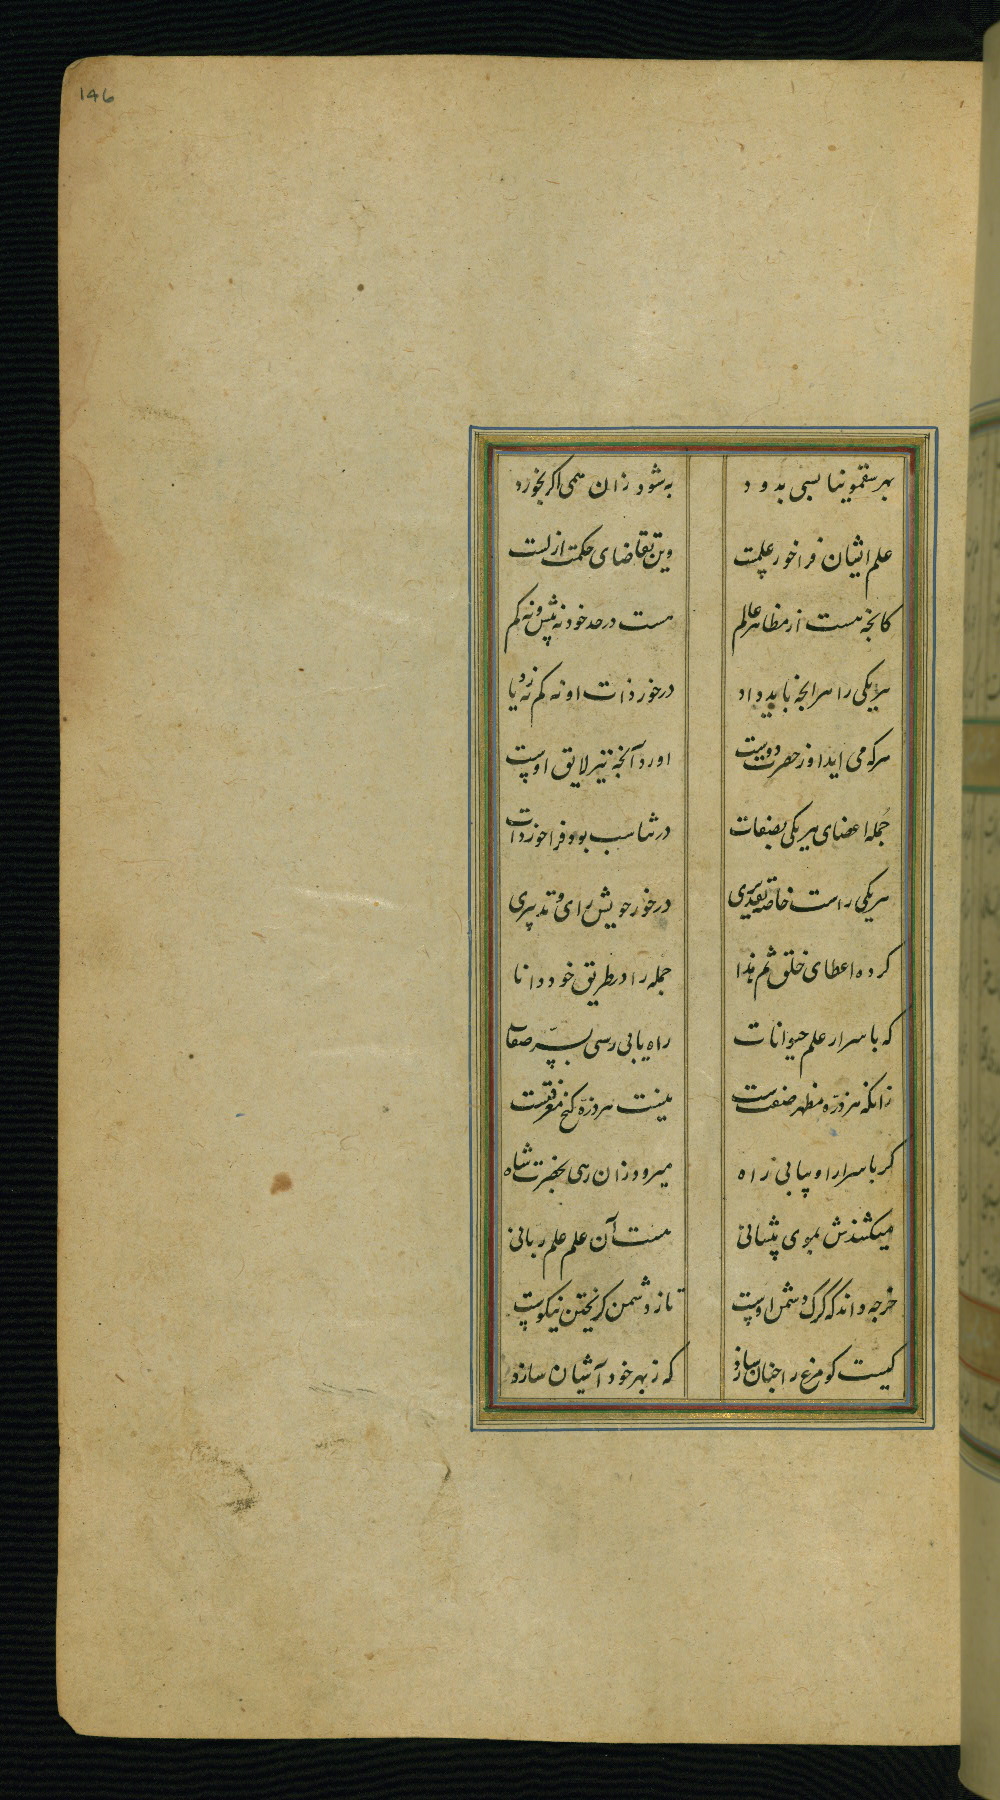 146
بهر سقمونیا بسی بدود به شود زان همی اگر بخورد
علم ایشان فراخور عملست وین تقاضای حکمت ازلست
کانچه هست از مظاهر عالم هست در حد خود نه بیش و نه کم
هر یکی را هر آنچه باید داد در خور ذات او نه کم نه زیاد
هر که می آید او ز حضرت دوست آورد آنچه نیز لایق اوست
جمله اعضای هر یکی بصفات در تناسب بود فراخور ذات
هر یکی راست خاصه تقدیری در خور خویش رای و تدبیری
کرده اعطای خلق ثم هدا جمله را در طریق خود دانا
که باسرار علم حیوانات راه یابی رسی بسر صفات
زانکه هر ذره مظهر صفتست هر ذره کنج معرفتست
گر باسرار او بیابی راه میرود زان رهی بحضرت شاه
میکشندش بموی پیشانی هست آن علم علم ربانی
خر چه داند که گرگ دشمن اوست تا ز دشمن گریختن نیکوست
کیست کو مرغ را چنان سازد که ز بهر خود آشیان سازد